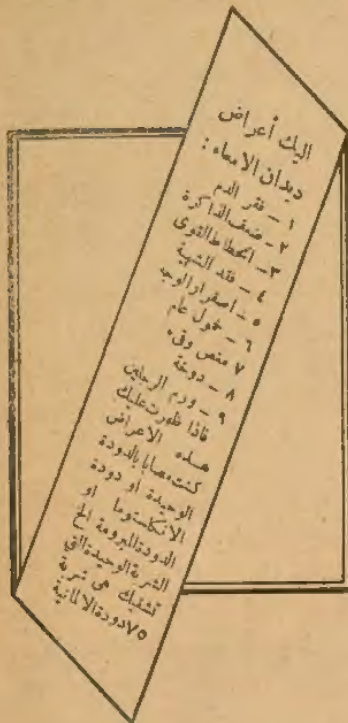 اليك أعراض
ديدان الامعاء :
١ – فقر الدم
٢ – ضعف الذاكرة
٣ – انحطاط القوى
٤ – فقد الشهية
٥ – اصفرار الوجه
٦ – خمول عام
٧ مغص وقىء
٨ – دوخة
٩ – ورم الرجلين
فاذا ظهرت عليك
هذه الاعراض
كنت مصابا بالدودة
الوحيدة أو دودة
الانكلستوما أو
الدودة المبرومة الخ
الشربة الوحيدة التي
تشفيك هى شربة
٧٥ دودة الالمانية